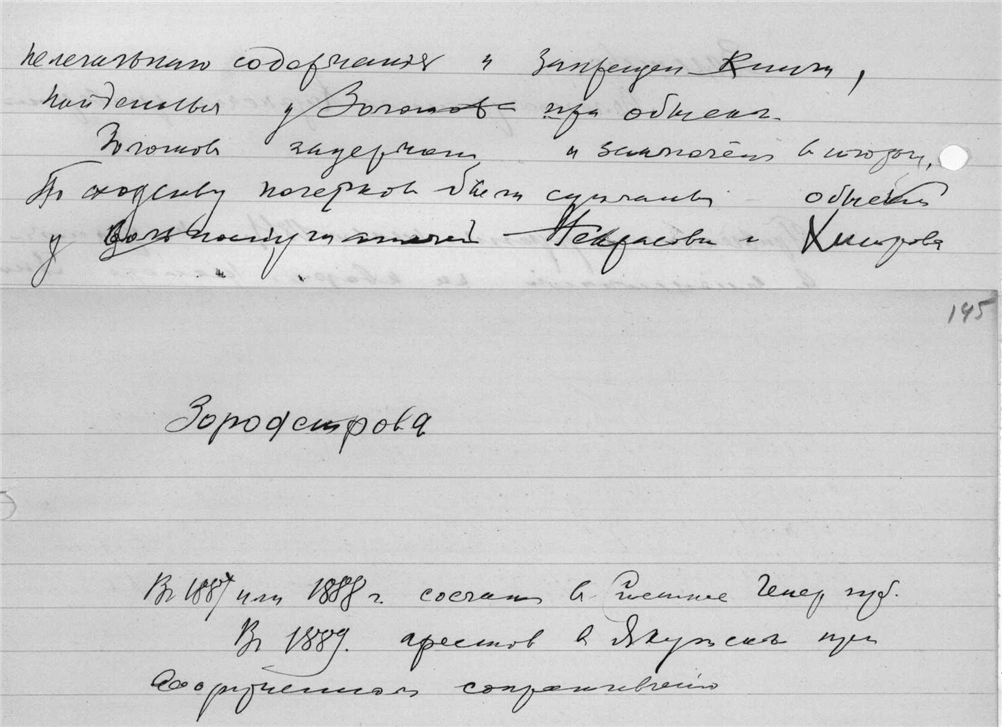 нелегального содержания и запрещен. книги,
найденные у Зотова при обыске.
Зотов задержан и заключен в тюрьму.
По сходству почерков были сделаны обыски
у вольнослушателей Некрасова и Хитрова
145
Зороастрова
В 1887 или 1888 г. сослан в Степное Генер губ.
В 1889. арестов в Якутске при
вооруженном сопротивлении